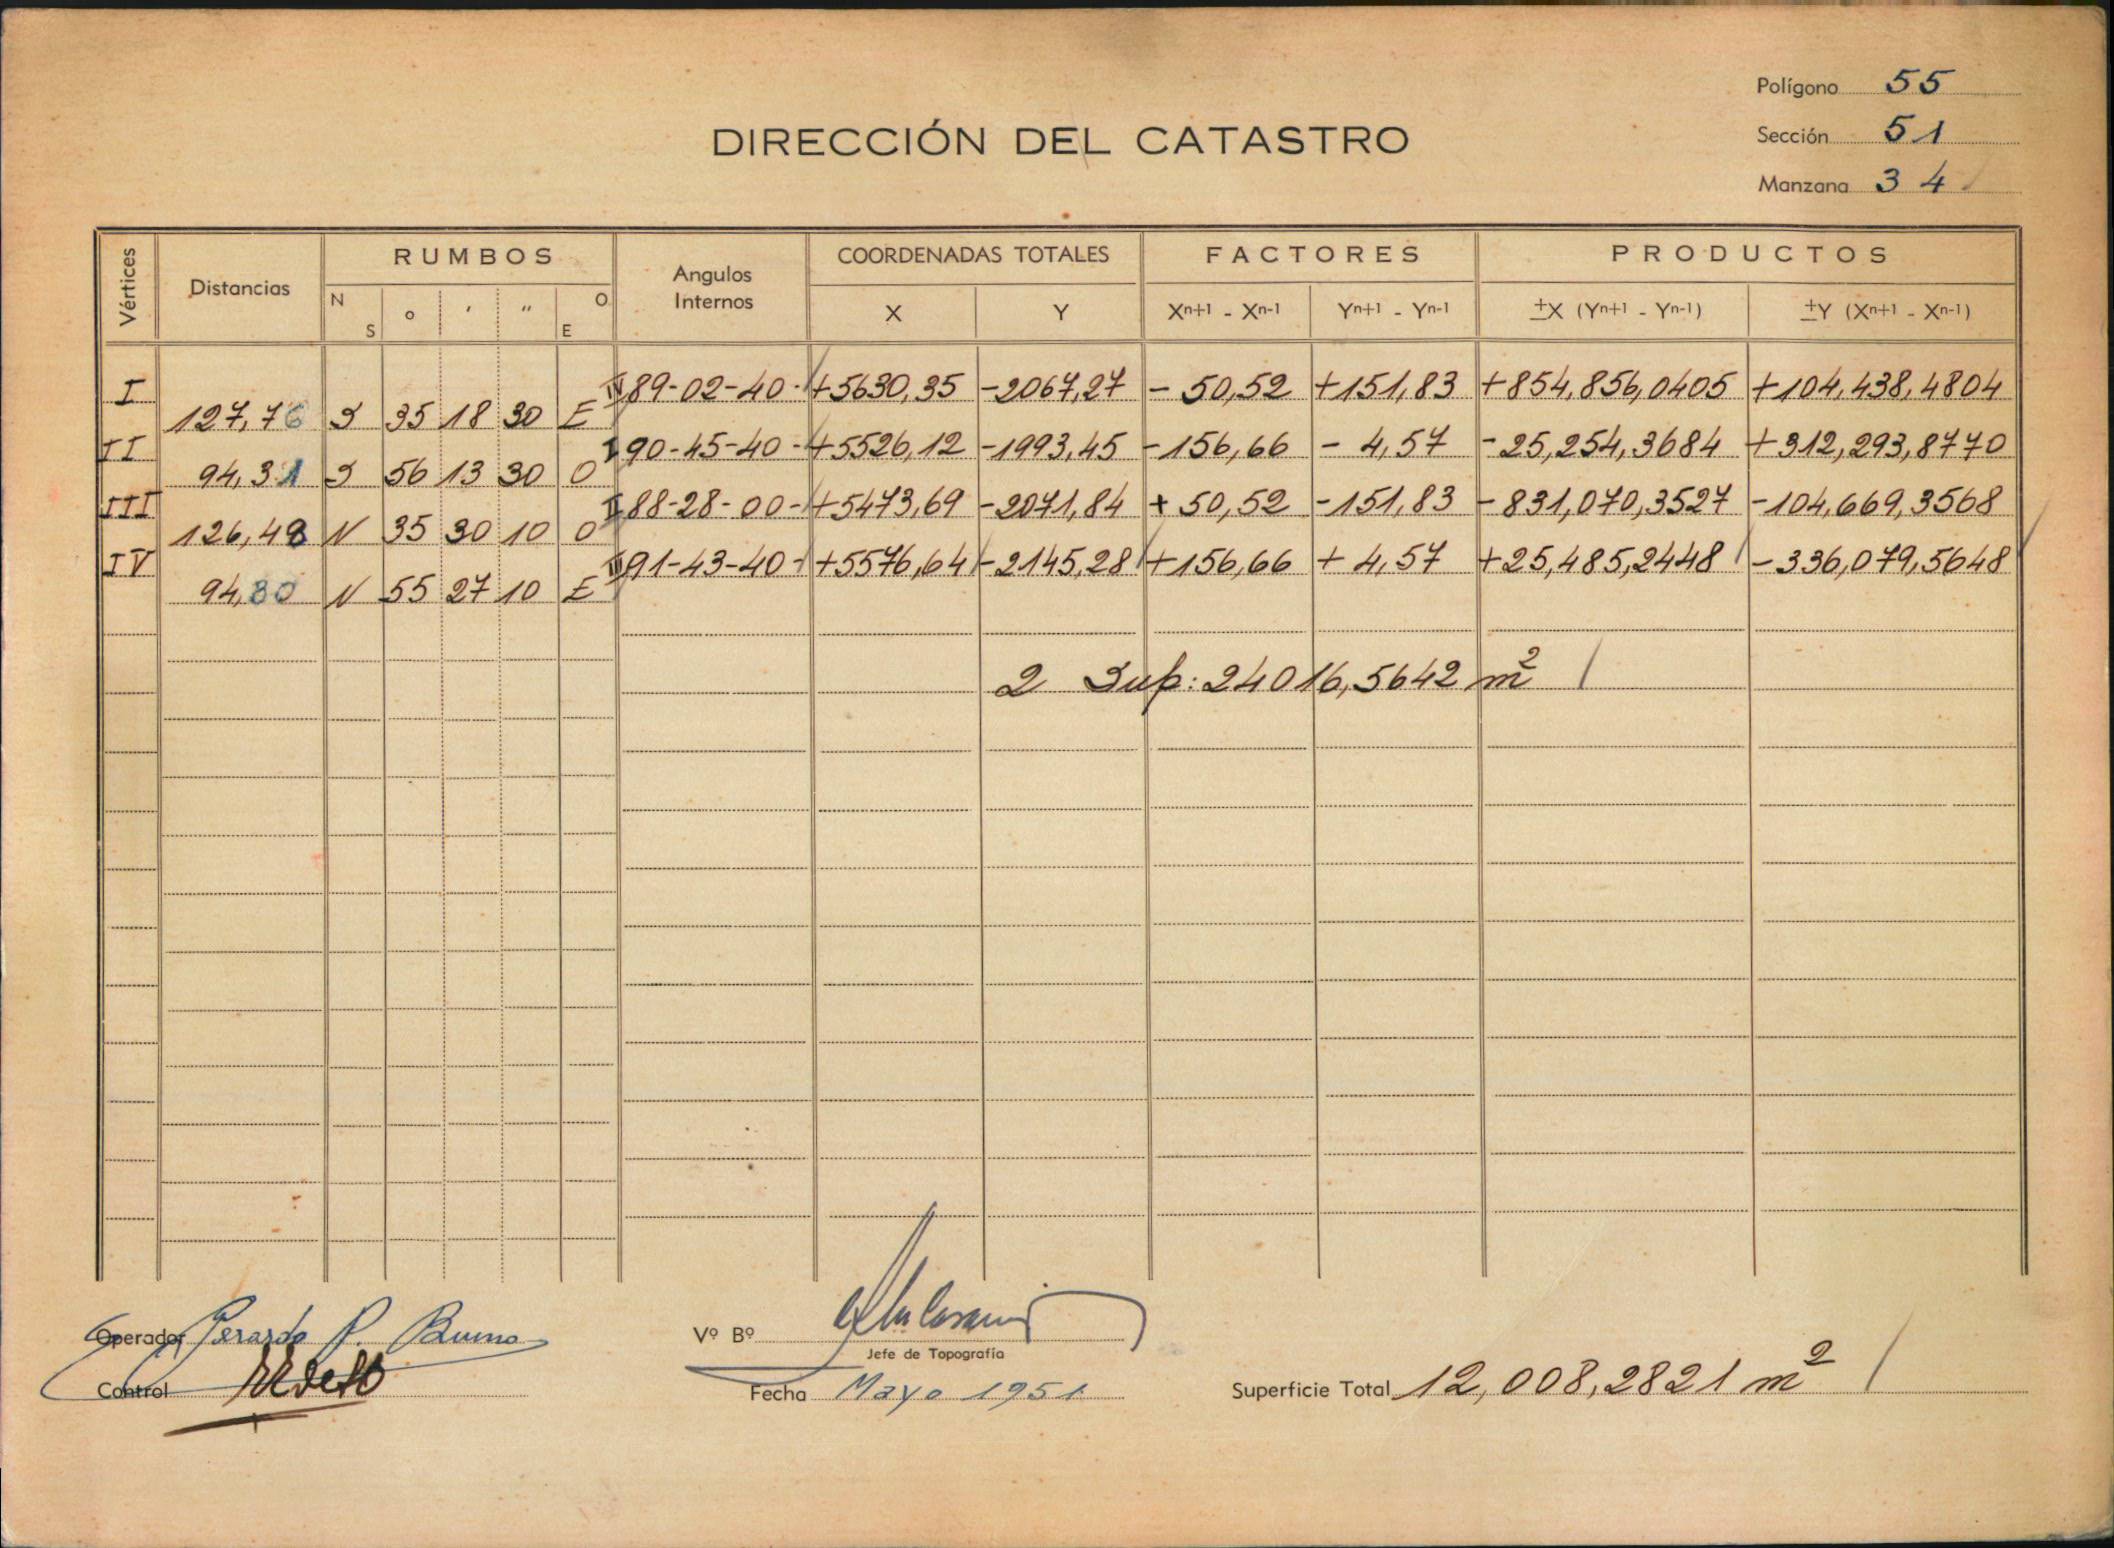 Polígono 55
DIRECCIÓN DEL CATASTRO
Sección 51
Manzana 34
Vértices Distancias RUMBOS Angulos Internos COORDENADAS TOTALES FACTORES PRODUCTOS
N S ° ' " O E X Y Xn+1 - Xn-1 Yn+1 - Yn-1 ±X (Yn+1 - Yn-1) ±Y (Xn+1 - Xn-1)
I IV 89-02-40 +5630,35 -2067,27 - 50,52 +151,83 +854,856,0405 +104,438,4804
127,76 S 35 18 30 E
II I 90-45-40 +5526,12 -1993,45 -156,66 - 4,57 -25,254,3684 +312,293,8770
94,31 S 56 13 30 O
III II 88-28-00 +5473,69 -2071,84 + 50,52 -151,83 -831,070,3527 -104,669,3568
126,48 N 35 30 10 O
IV III 91-43-40 +5576,64 -2145,28 +156,66 + 4,57 +25,485,2448 -336,079,5648
94,80 N 55 27 10 E
2 Sup: 24016,5642 m²
Operador Gerardo P. Bueno
Vº Bº
Jefe de Topografía
Control
Fecha Mayo 1951
Superficie Total 12,008,2821 m²